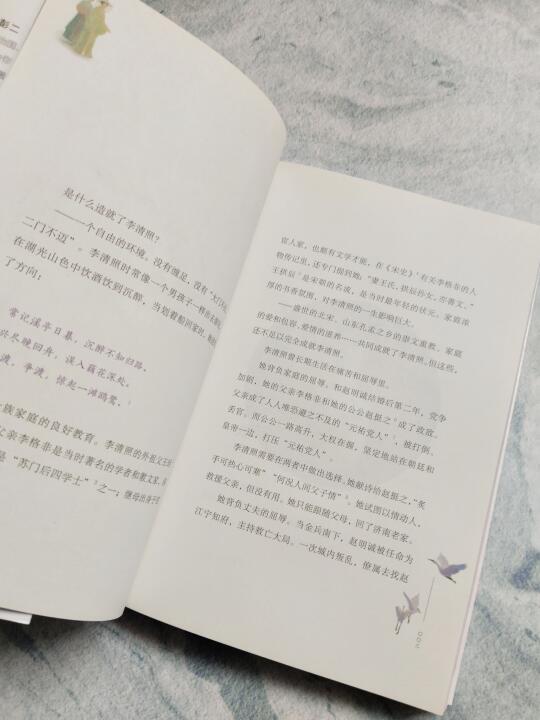 彭二
是什么造就了李清照？
———一个自由的环境。没有缠足，没有“大门不
二门不迈”。李清照时常像一个男孩子一样出去
在湖光山色中饮酒饮到沉醉，当划着船回家时，
了方向：
常记溪亭日暮，沉醉不知归路。
兴尽晚回舟，误入藕花深处。
渡，争渡，惊起一滩鸥鹭。
族家庭的良好教育。李清照的外祖父王
父亲李格非是当时著名的学者和散文家，
是“苏门后四学士”之一；继母出身于
宦人家，也颇有文学才能，在《宋史》有关李格非的人
物传记里，还专门提到她：“妻王氏，拱辰孙女，亦善文。”
王拱辰是宋朝的名流，是当时最年轻的状元。家庭浓
厚的书香氛围，对李清照的一生影响巨大。
——盛世的北宋、山东孔孟之乡的崇文重教、家庭
的爱和包容、爱情的滋养……共同成就了李清照。但这些，
还不足以完全成就李清照。
李清照曾长期生活在痛苦和屈辱里。
她背负家庭的屈辱。和赵明诚结婚后第二年，党争
加剧，她的父亲李格非和她的公公赵挺之成了政敌。
父亲成了人人唯恐避之不及的“元祐党人”，被打倒、
丢官。而公公一路高升，大权在握，坚定地站在朝廷和
皇帝一边，打压“元祐党人”。
李清照需要在两者中做出选择。她献诗给赵挺之，“炙
手可热心可寒”“何况人间父子情”。她试图以情动人，
救援父亲，但没有用。她只能跟随父母，回了济南老家。
她背负丈夫的屈辱。当金兵南下，赵明诚被任命为
江宁知府，主持救亡大局。一次城内叛乱，僚属去找赵